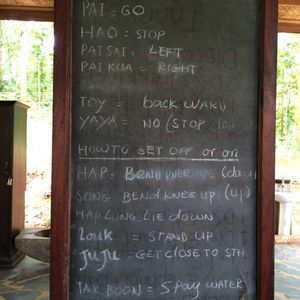 PAI = GO
HAO = STOP
PAI SAI = LEFT
PAI KUA = RIGHT
TOY = back WARD
YAYA = NO (STOP
HOW TO GET OFF or on
HAP = BEND KNEE (down
SONG BEND KNEE UP (UP)
MAP LUNG LIE down
LOUK = STAND UP
JUJU = GET CLOSE TO STH
TAK BOON = SPAY WATER